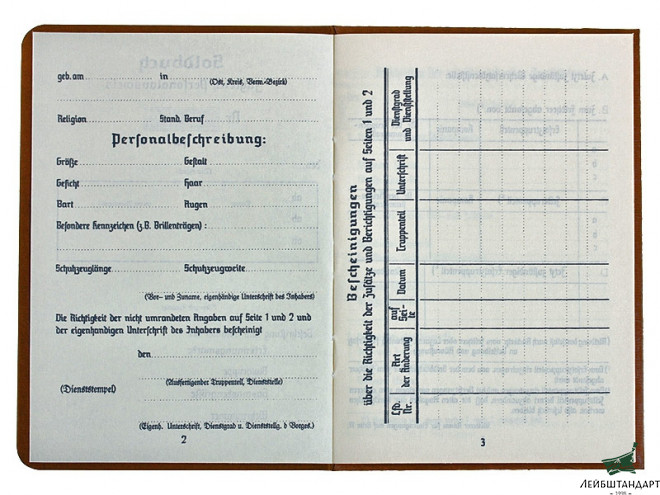 geb. am in
(Ort, Kreis, Verw.-Bezirk)
Religion Stand. Beruf
Personalbeschreibung:
Größe Gestalt
Gesicht Haar
Bart Augen
Besondere Kennzeichen (z.B. Brillenträgen) :
Schuhzeuglänge Schuhzeugweite
(Vor- und Zuname, eigenhändige Unterschrift des Inhabers)
Die Richtigkeit der nicht umrandeten Angaben auf Seite 1 und 2 und
der eigenhandigen Unterschrift des Inhabers bescheinigt
den
(Ausfertigender Truppenteil, Dienststelle)
(Dienststempel)
(Eigenh. Unterschrift, Dienstgrad u. Dienststellg. d Vorges.)
2
Bescheinigungen
über die Richtigkeit der Zusätze und Berichtigungen auf Seiten 1 und 2
Lfd.
Nr.
Art
der Änderung
auf
Sei-
te
Datum
Truppenteil
Unterschrift
Dienstgrad
und Dienststellung
3
ЛЕЙБШТАНДАРТ
1998